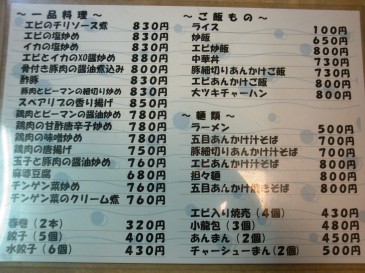 ～一品料理～
エビのチリソース煮 830円
エビの塩炒め 830円
イカの塩炒め 830円
エビとイカのXO醤炒め 880円
骨付き豚肉の醤油煮込み 800円
酢豚 830円
豚肉とピーマンの細切り炒め 830円
スペアリブの香り揚げ 850円
鶏肉とピーマンの醤油炒め 780円
鶏肉の甘酢唐辛子炒め 780円
鶏肉の味噌炒め 780円
鶏肉の唐揚げ 750円
玉子と豚肉の醤油炒め 760円
麻婆豆腐 680円
チンゲン菜炒め 760円
チンゲン菜のクリーム煮 760円
春巻（2本） 320円
餃子（5個） 400円
水餃子（6個） 430円
～ご飯もの～
ライス 100円
炒飯 650円
エビ炒飯 800円
中華丼 730円
豚細切りあんかけご飯 730円
エビあんかけご飯 800円
大ツキチャーハン 800円
～麺類～
ラーメン 500円
五目あんかけ汁そば 700円
豚細切りあんかけ汁そば 700円
エビあんかけ汁そば 800円
担々麺 800円
五目あんかけ焼きそば 800円
エビ入り焼売（4個） 430円
小龍包（3個） 480円
あんまん（2個） 450円
チャーシューまん（2個） 500円